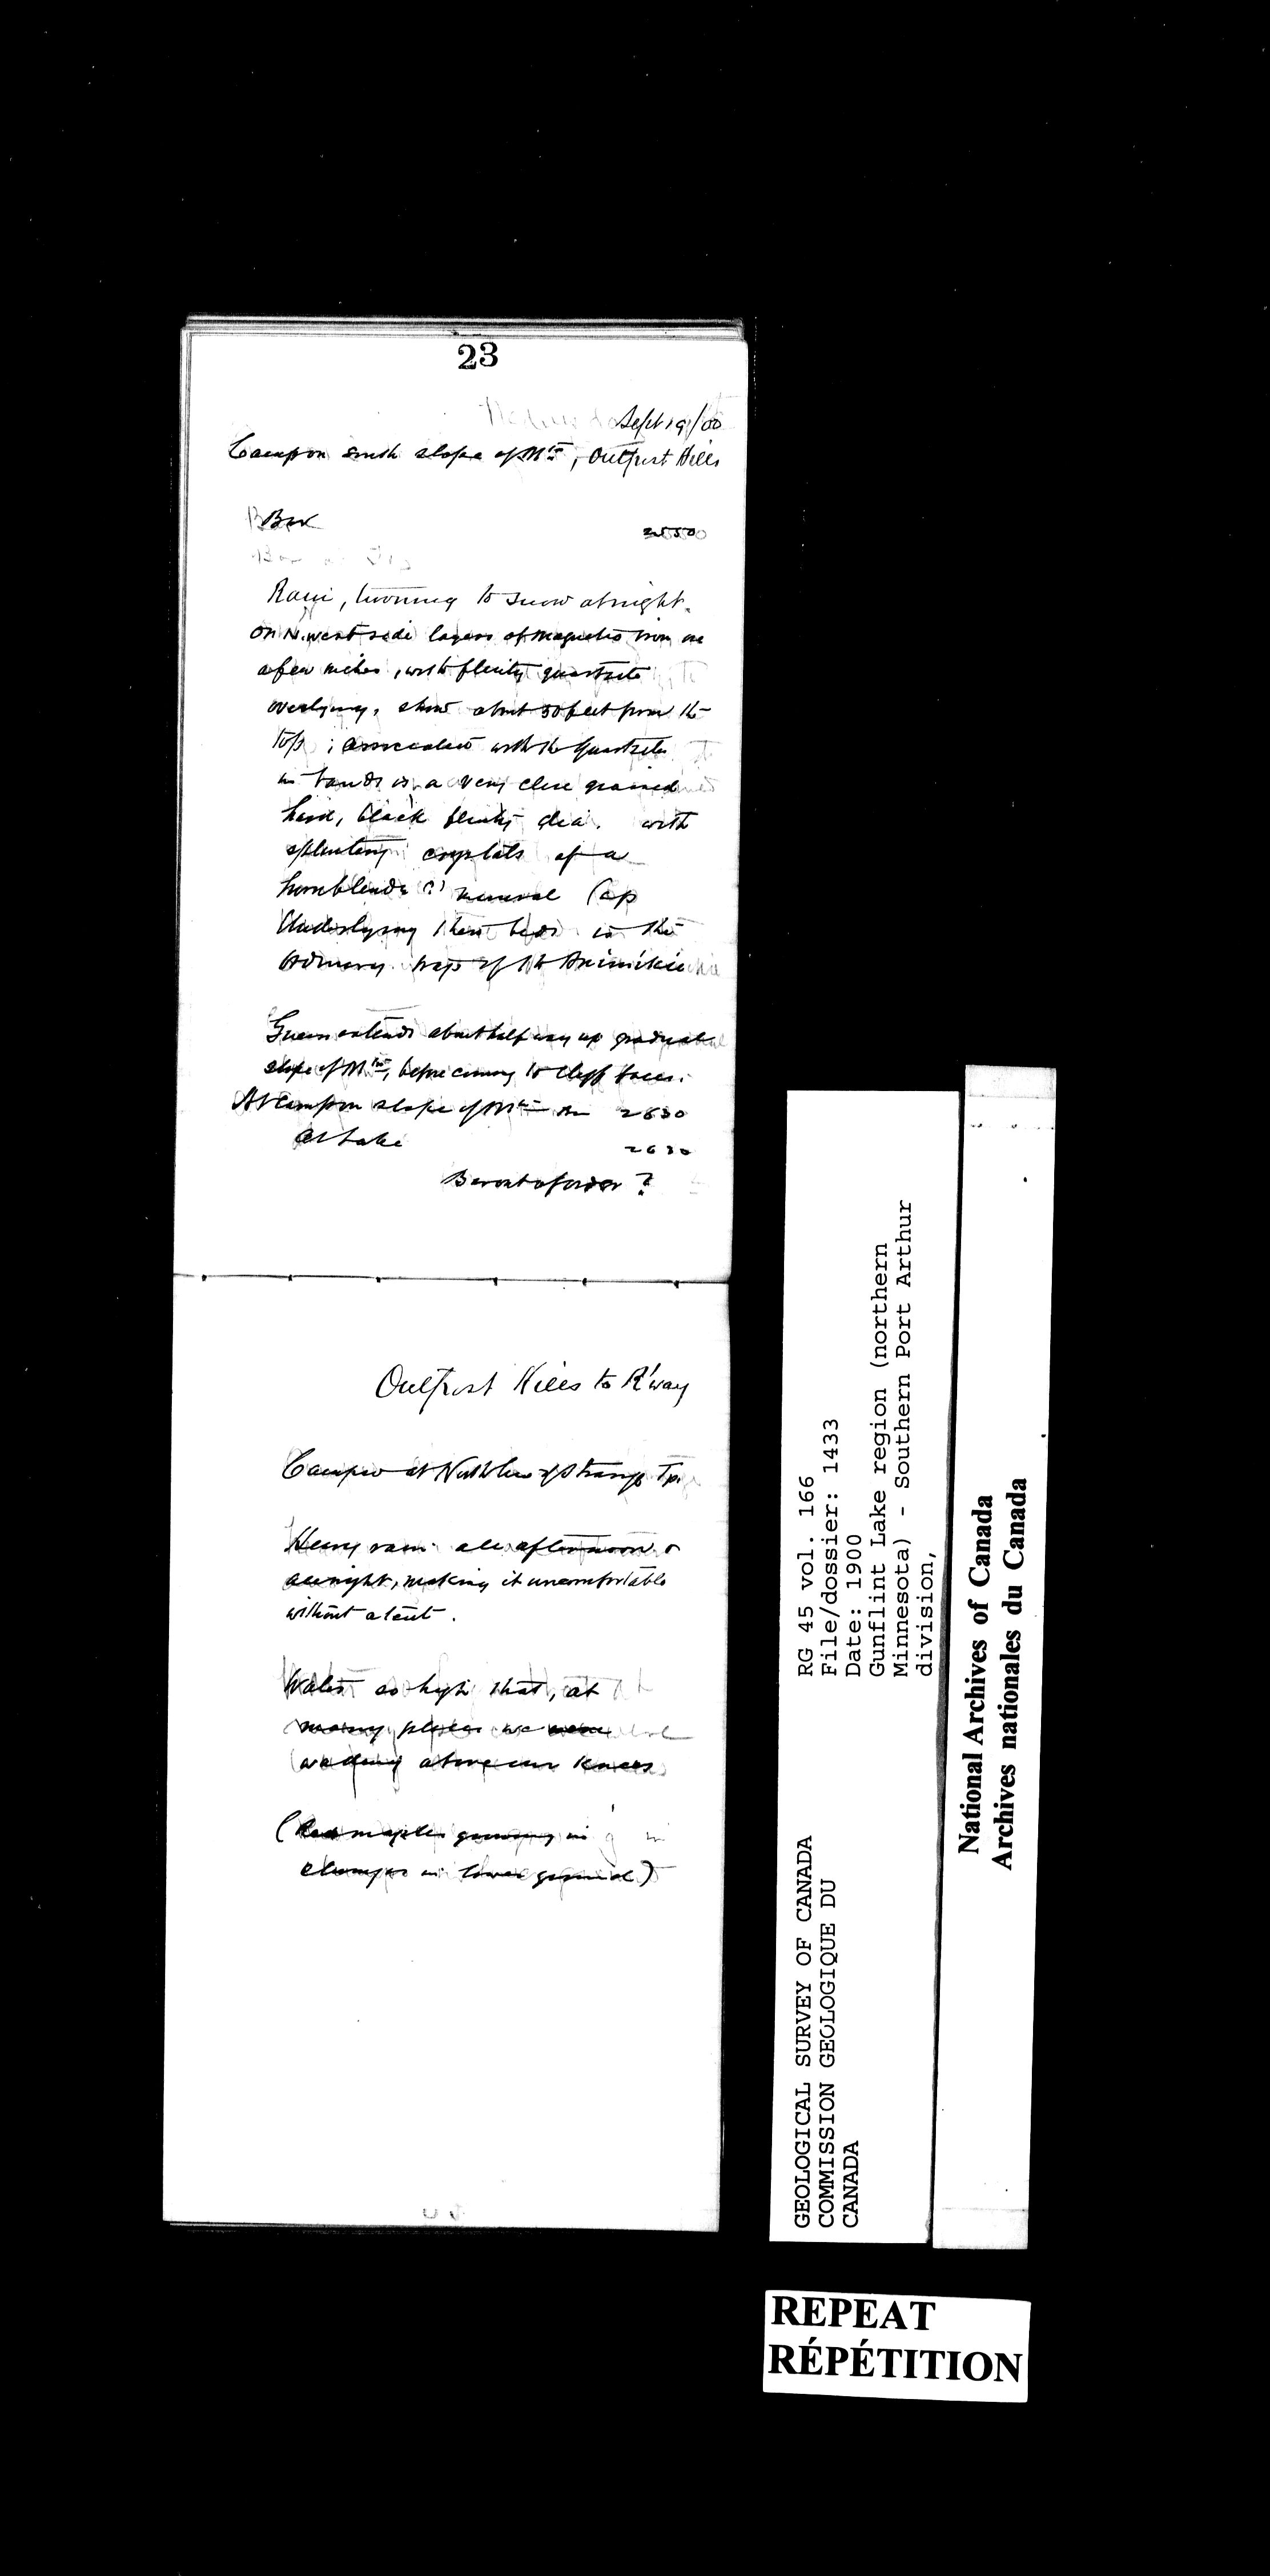 23
Sept 19/00
Camp on south slope of Mtn, Outpost Hills
Bar 2550
Rain, turning to snow at night.
On N. west side layers of magnetic iron ore
a few inches, with flinty quartzite
overlying, show about 50 feet from the
top; associated with the quartzite
in bands is a very close grained
hard, black flinty dia. with
splintery crystals of a
hornblende (?) mineral
Underlying these beds is the
ordinary trap of the Animikie
Gneiss extends about half way up gradual
slope of Mtn, before coming to cliff faces.
At Camp on slope of Mtn 2630
At Lake 2630
Bar out of order?
Outpost Hills to R'way
Camped at North line of Strange Tp.
Heavy rain all afternoon &
all night, making it uncomfortable
without a tent.
Water so high that, at
many places we were
wading above our knees
(Red maples growing in
clumps in lower ground)
RG 45 vol. 166
File/dossier: 1433
Date: 1900
Gunflint Lake region (northern
Minnesota) - Southern Port Arthur
division,
GEOLOGICAL SURVEY OF CANADA
COMMISSION GEOLOGIQUE DU
CANADA
National Archives of Canada
Archives nationales du Canada
REPEAT
RÉPÉTITION